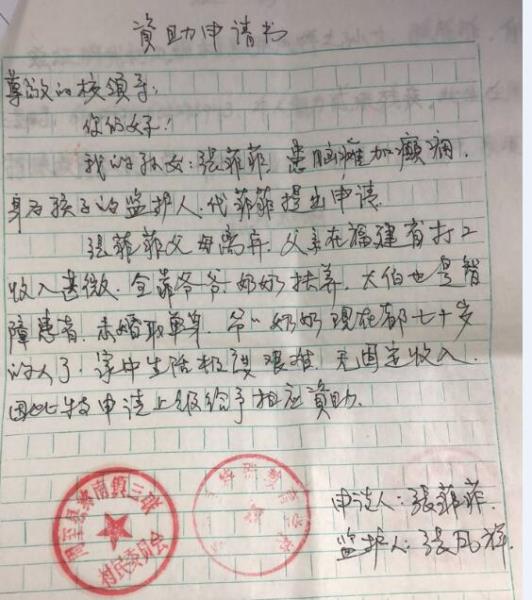 資助申请书
尊敬的校领导:
你们好!
我的孙女:张菲菲,患脑瘫加癫痫,
身为孩子的监护人,代菲菲提出申请
张菲菲父母离弃,父亲在福建省打工
收入甚微,全靠爷爷奶奶扶养,大伯也是智
障患者,未婚取单身,爷〃奶奶现在都七十岁
的人了,家中生活极度艰难,无固定收入.
因此特申请上级给予相应資助.
申请人:张菲菲.
监护人:张凤祥.
村民委员会